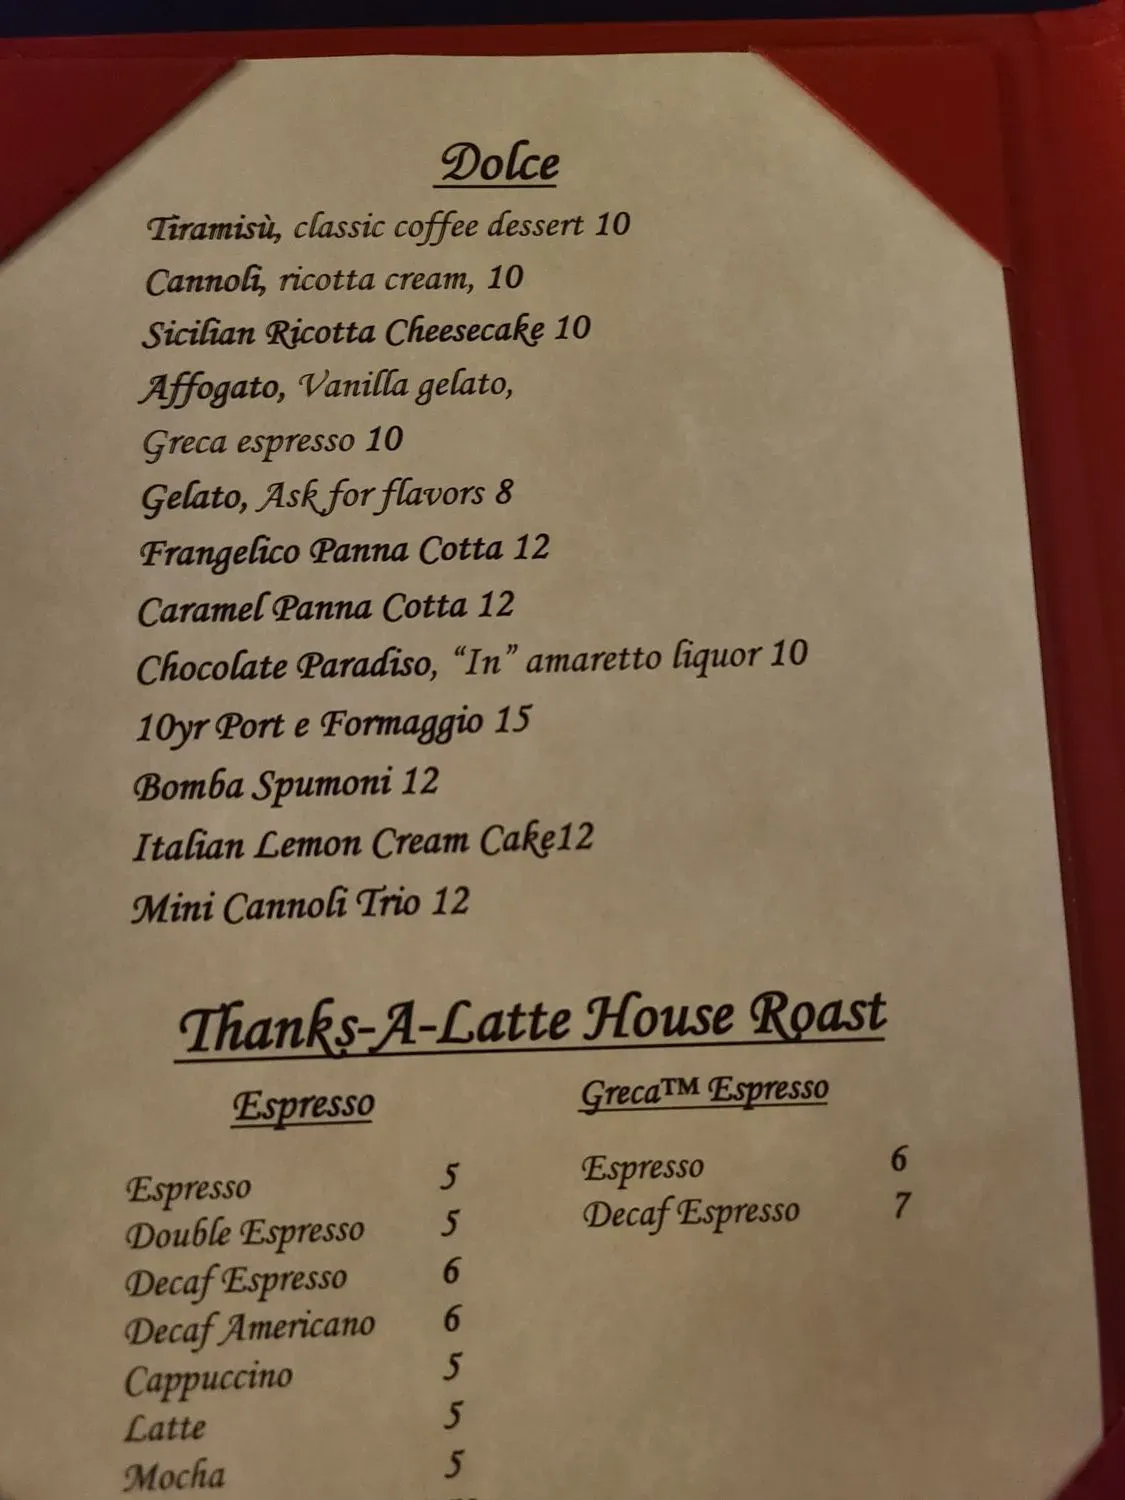 Dolce
Tiramisù, classic coffee dessert 10
Cannoli, ricotta cream, 10
Sicilian Ricotta Cheesecake 10
Affogato, Vanilla gelato,
Greca espresso 10
Gelato, Ask for flavors 8
Frangelico Panna Cotta 12
Caramel Panna Cotta 12
Chocolate Paradiso, “In” amaretto liquor 10
10yr Port e Formaggio 15
Bomba Spumoni 12
Italian Lemon Cream Cake12
Mini Cannoli Trio 12
Thanks-A-Latte House Roast
Espresso
Espresso 5
Double Espresso 5
Decaf Espresso 6
Decaf Americano 6
Cappuccino 5
Latte 5
Mocha 5
Greca™ Espresso
Espresso 6
Decaf Espresso 7